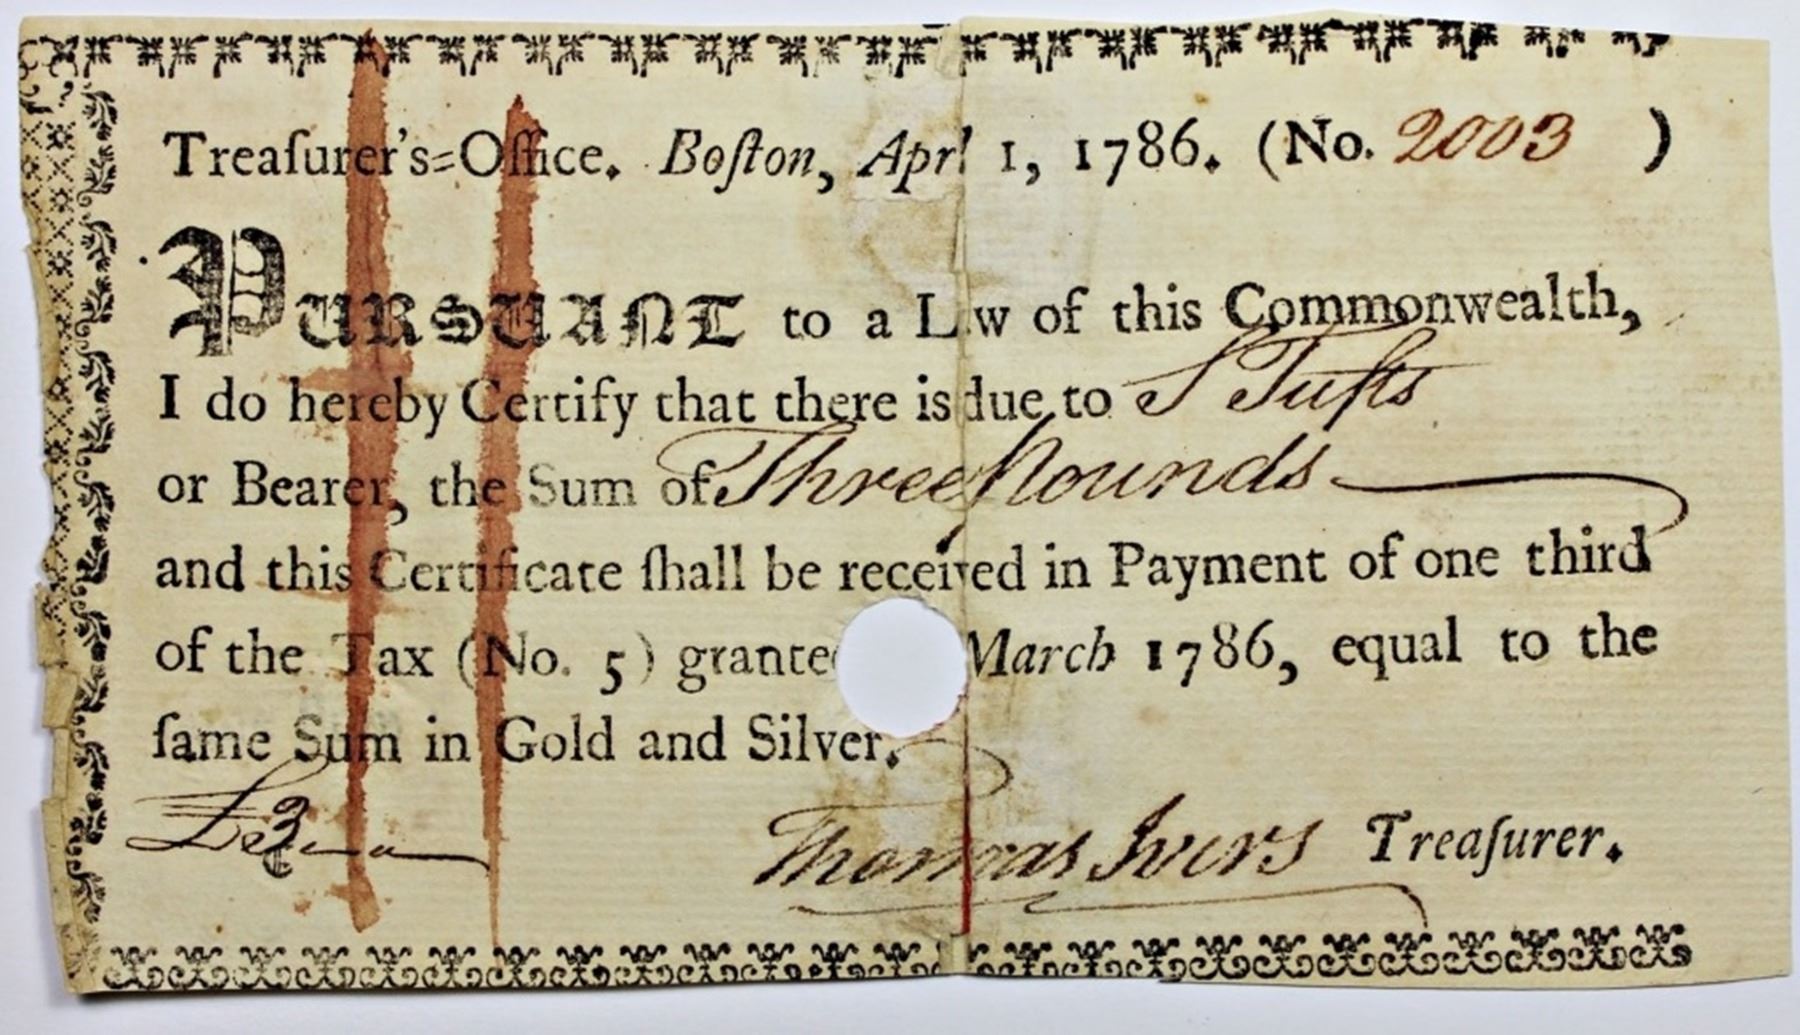 Treaſurer's=Office. Boſton, Apr! 1, 1786. (No. 2003 )
PURSUANT to a L w of this Commonwealth,
I do hereby Certify that there is due to S Tufts
or Bearer, the Sum of Three Pounds
and this Certificate ſhall be received in Payment of one third
of the Tax (No. 5) grante March 1786, equal to the
ſame Sum in Gold and Silver.
£3
Thomas Ivers Treaſurer.